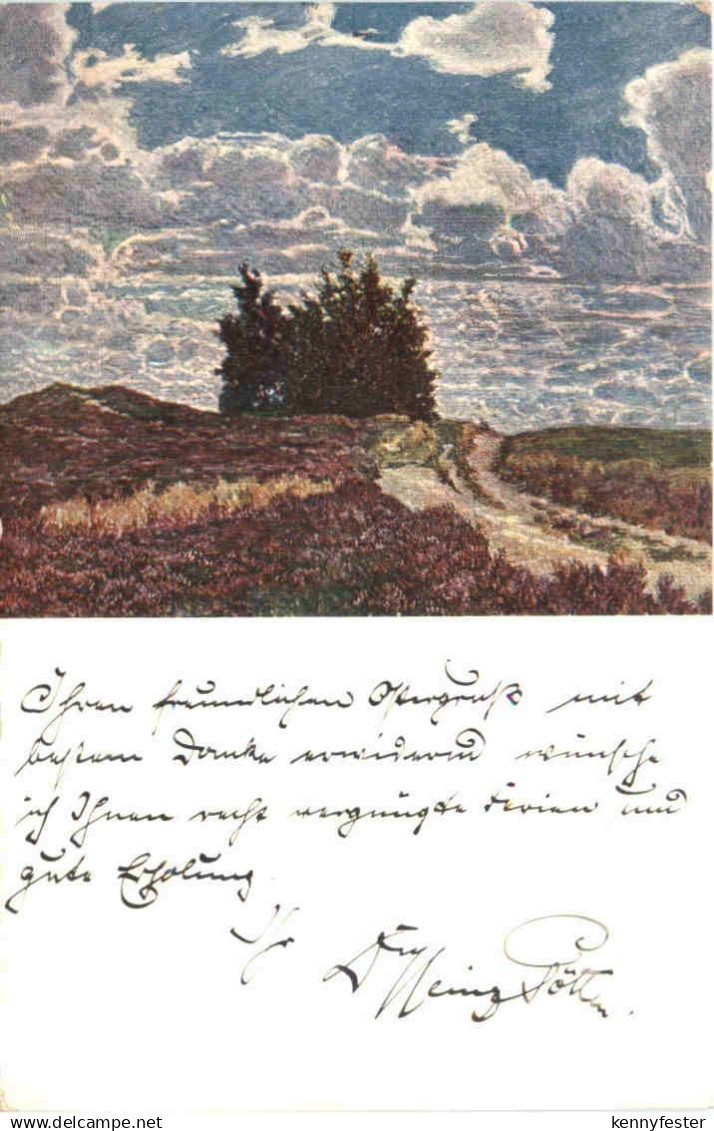 Ihren freundlichen Ostergruß mit
bestem Danke erwidernd wünsche
ich Ihnen recht vergnügte Ferien und
gute Erholung.
Ihr
Dr Heinz
www.delcampe.net
kennyfester